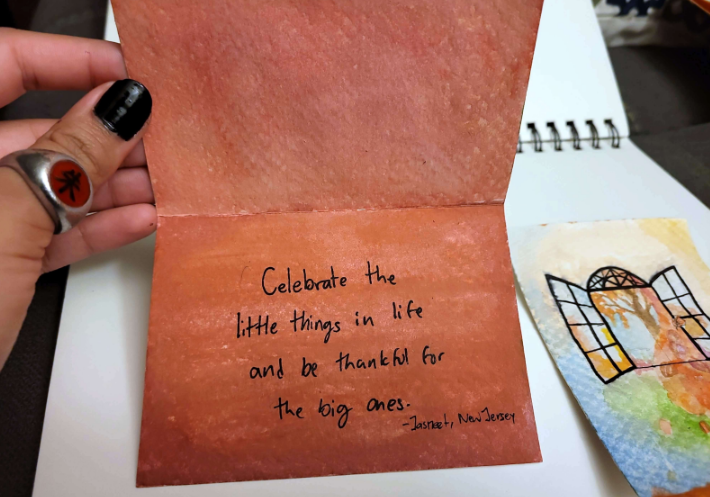 Celebrate the
little things in life
and be thankful for
the big ones.
-Jasmeet, New Jersey